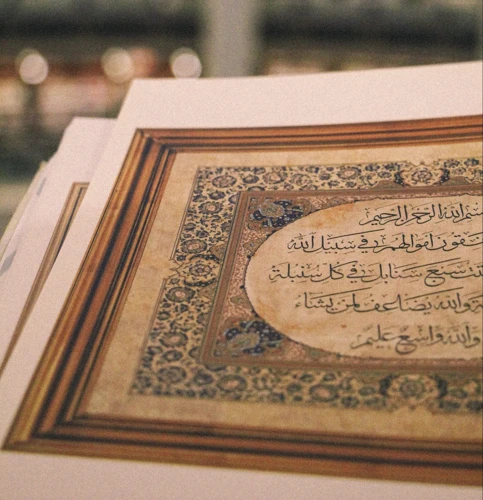 بسم الله الرحمن الرحيم
ينفقون اموالهم في سبيل الله
سبع سنابل في كل سنبلة
والله يضاعف لمن يشاء
والله واسع عليم